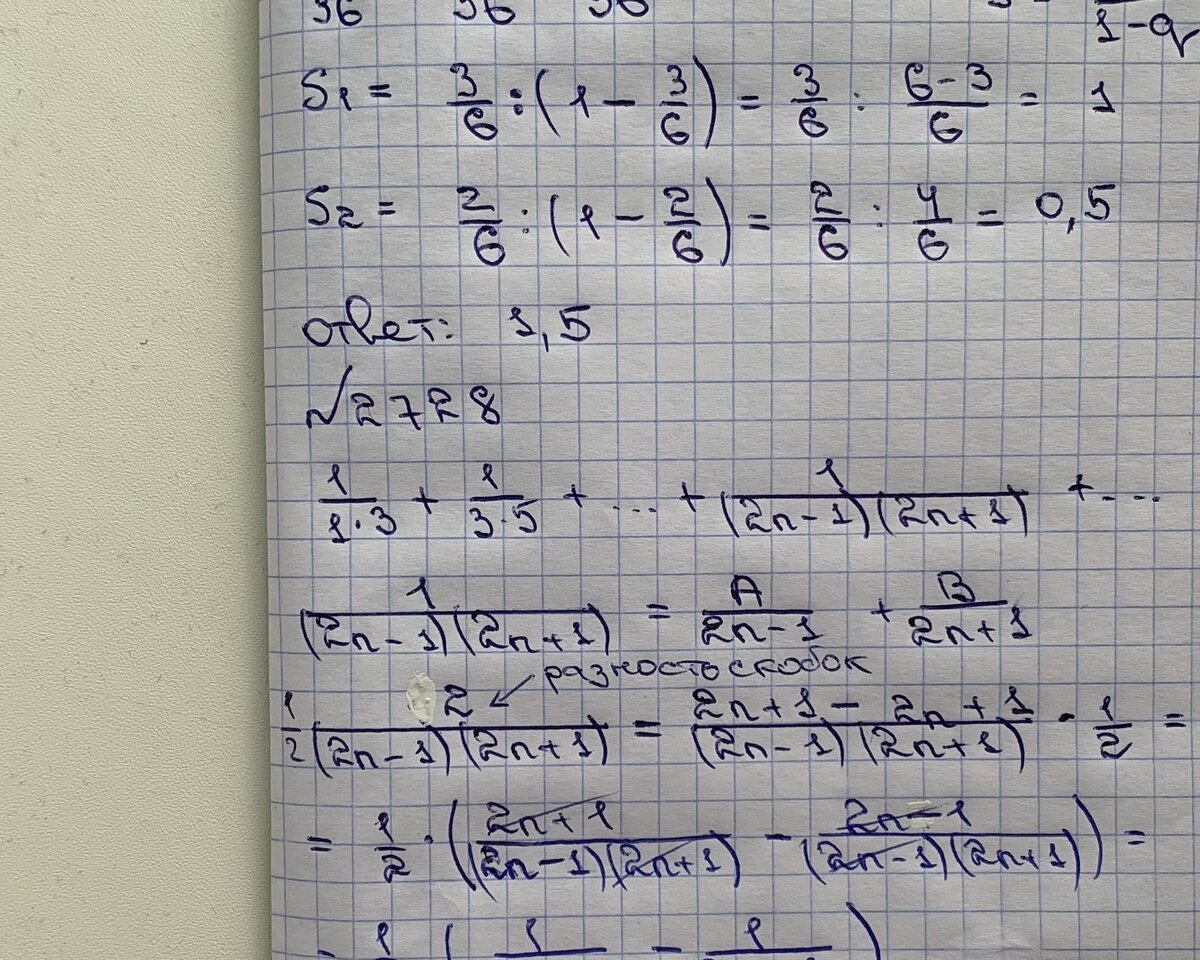 36 36 36
1-q
S₁ = 3/6 : (1 - 3/6) = 3/6 : (6-3)/6 = 1
S₂ = 2/6 : (1 - 2/6) = 2/6 : 4/6 = 0,5
ответ: 1,5
√2728
1/(1·3) + 1/(3·5) + ... + 1/((2n-1)(2n+1)) + ...
1/((2n-1)(2n+1)) = A/(2n-1) + B/(2n+1)
разность скобок
1/2 2/((2n-1)(2n+1)) = (2n+1 - 2n+1)/((2n-1)(2n+1)) · 1/2 =
= 1/2 · ((2n+1)/((2n-1)(2n+1)) - (2n-1)/((2n-1)(2n+1))) =